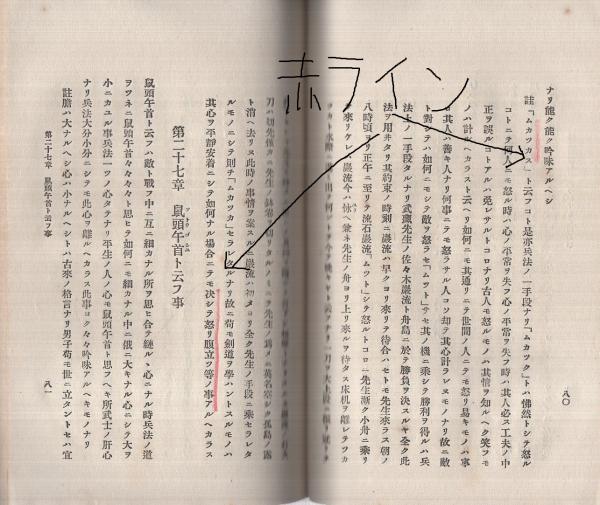 赤ライン
ナリ能ク能ク吟味アルヘシ
註「ムカツカス」ト云フコト是亦兵法ノ一手段ナリ「ムカツク」トハ怫然トシテ怒ル
コトニテ何人ニモ怒ル時ハ心ノ平常ヲ失フ心ノ平常ヲ失フ時ハ其人必ス工夫ノ中
正ヲ誤ルコトアルハ免レサルトコロナリ古人モ怒ルモノハ其情ヲ知ルヘク笑フモ
ノハ計ルヘカラスト云ヘリ如何ニモ其通リニテ世間ノ人ニテモ怒リ易キモノハ事
ト對シテハ如何ニモシテ敵ヲ怒ラセ「ムツト」サセ其ノ機ニ乘シテ勝利ヲ得ルハ兵
法上ノ一手段タルナリ武藏先生ノ佐々木巖流ト舟島ニ於テ勝負ヲ決スルヤ全ク此
法ヲ用井タリ其約束ノ時刻ハ早クヨリ來リテ待合ハセトモ先生來ラス朝ノ
八時頃ヨリ正午ニ至リテ流石巖流「ムツト」シテ怒ルトコロニ先生漸ク小舟ニ乘リ
ト消ヘ去リス此時ノ事情ヲ案スルニ巖流ハ初メヨリ全ク先生ノ手段ニ乘セラレタ
ルモノニシテ則チ「ムカツカ」セラレタルナリ故ニ苟モ劍道ヲ學ハントスルモノハ
其心ヲ平靜安着ニシテ如何ナル場合ニテモ決シテ怒リ腹立ツ等ノ事アルヘカラス
第二十七章 鼠頭午首ト云フ事
鼠頭午首ト云フハ敵ト戰フ中ニ互ニ細カナル所ヲ思ヒ合テ縺ルヽ心ニナル時兵法ノ道
ヲツネニ鼠頭午首々々々々ト思ヒテ如何ニモ細カナル中ニ俄ニ大キナル心ニシテ大ヲ
小ニカユル事兵法一ツノ心タテナリ平生ノ人ノ心モ鼠頭午首ト思フヘキ所武士ノ肝心
ナリ兵法大分小分ニシテモ此心ヲ離ルヘカラス此事ヨク々々吟味アルヘキモノナリ
註膽ハ大ナルヘシ心ハ小ナルヘシトハ古來ノ格言ナリ男子苟モ世ニ立タントセハ宜
第二十七章 鼠頭午首ト云フ事
八一
八〇